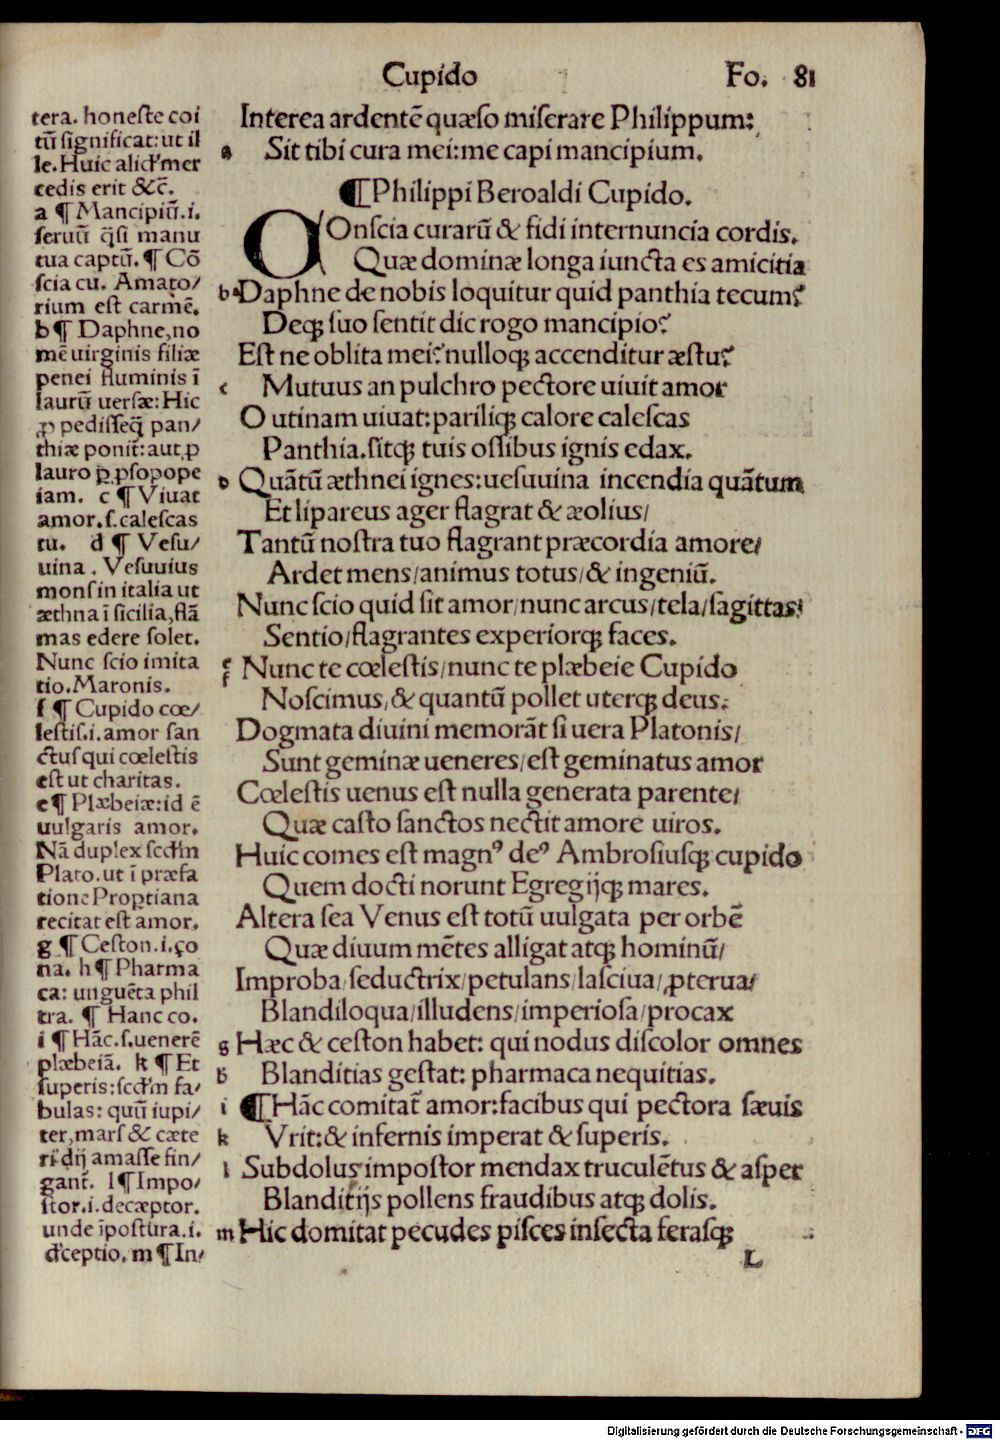 Cupido
Fo. 81
tera. honeſte coi
tū ſignificat: ut il
le. Huic aliꝗd mer
cedis erit &c̄.
a ¶ Mancipiū.i.
ſeruū q̄ſi manu
tua captū. ¶ Cō
ſcia cu. Amato/
rium eſt carmē.
b ¶ Daphne, no
mē uirginis filiæ
penei fluminis ī
laurū uerſæ: Hic
ꝓ pediſſeq̄ pan/
thiæ ponit̄: aut ꝓ
lauro ꝑ ꝓſopope
iam. c ¶ Viuat
amor.ſ.caleſcas
tu. d ¶ Veſu/
uina. Veſuuius
monſ in italia ut
æthna ī ſicilia, flā
mas edere ſolet.
Nunc ſcio imita
tio. Maronis.
f ¶ Cupido cœ/
leſtiſ.i. amor ſan
ctuſ qui cœleſtis
eſt ut charitas.
e ¶ Plæbeiæ: id ē
uulgaris amor.
Nā duplex ſcd'm
Plato. ut ī præfa
tione Proꝑtiana
recitat eſt amor.
g ¶ Ceſton.i.ço
na. h ¶ Pharma
ca: unguēta phil
tra. ¶ Hanc co.
i ¶ Hāc.ſ.uenerē
plæbeiā. k ¶ Et
ſuperis: ſcd'm fa/
bulas: quū iupi/
ter, marſ & cæte
ri dij amaſſe fin/
gant̄. l ¶ Impo/
ſtor.i. decæptor.
unde īpoſtura.i.
d'ceptio. m ¶ In/
Interea ardentē quæſo miſerare Philippum:
a Sit tibi cura mei: me capi mancipium.
¶ Philippi Beroaldi Cupido.
COnſcia curarū & fidi internuncia cordis.
Quæ dominæ longa iuncta es amicitia
b Daphne de nobis loquitur quid panthia tecum?
Deqꝫ ſuo ſentit dic rogo mancipio?
Eſt ne oblita mei? nulloqꝫ accenditur æſtu?
c Mutuus an pulchro pectore uiuit amor
O utinam uiuat: pariliqꝫ calore caleſcas
Panthia. ſitqꝫ tuis oſſibus ignis edax.
D Quātū æthnei ignes: ueſuuina incendia quātum
Et lipareus ager flagrat & æolius/
Tantū noſtra tuo flagrant præcordia amore/
Ardet mens/ animus totus/ & ingeniū.
Nunc ſcio quid ſit amor/ nunc arcus/ tela/ ſagittas/
Sentio/ flagrantes experiorqꝫ faces.
e f Nunc te cœleſtis/ nunc te plæbeie Cupido
Noſcimus, & quantū pollet uterqꝫ deus.
Dogmata diuini memorāt ſi uera Platonis/
Sunt geminæ ueneres/ eſt geminatus amor
Cœleſtis uenus eſt nulla generata parente/
Quæ caſto ſanctos nectit amore uiros.
Huic comes eſt magnꝰ deꝰ Ambroſiuſqꝫ cupido
Quem docti norunt Egregijqꝫ mares.
Altera ſea Venus eſt totū uulgata per orbē
Quæ diuum mētes alligat atqꝫ hominū/
Improba/ ſeductrix/ petulans/ laſciua/ ꝓterua/
Blandiloqua/ illudens/ imperioſa/ procax
g Hæc & ceſton habet: qui nodus diſcolor omnes
h Blanditias geſtat: pharmaca nequitias.
i ¶ Hāc comitat̄ amor: facibus qui pectora ſæuis
k Vrit: & infernis imperat & ſuperis.
l Subdolus impoſtor mendax truculētus & aſper
Blanditijs pollens fraudibus atqꝫ dolis.
m Hic domitat pecudes piſces inſecta feraſqꝫ
L
Digitalisierung gefördert durch die Deutsche Forschungsgemeinschaft - DFG